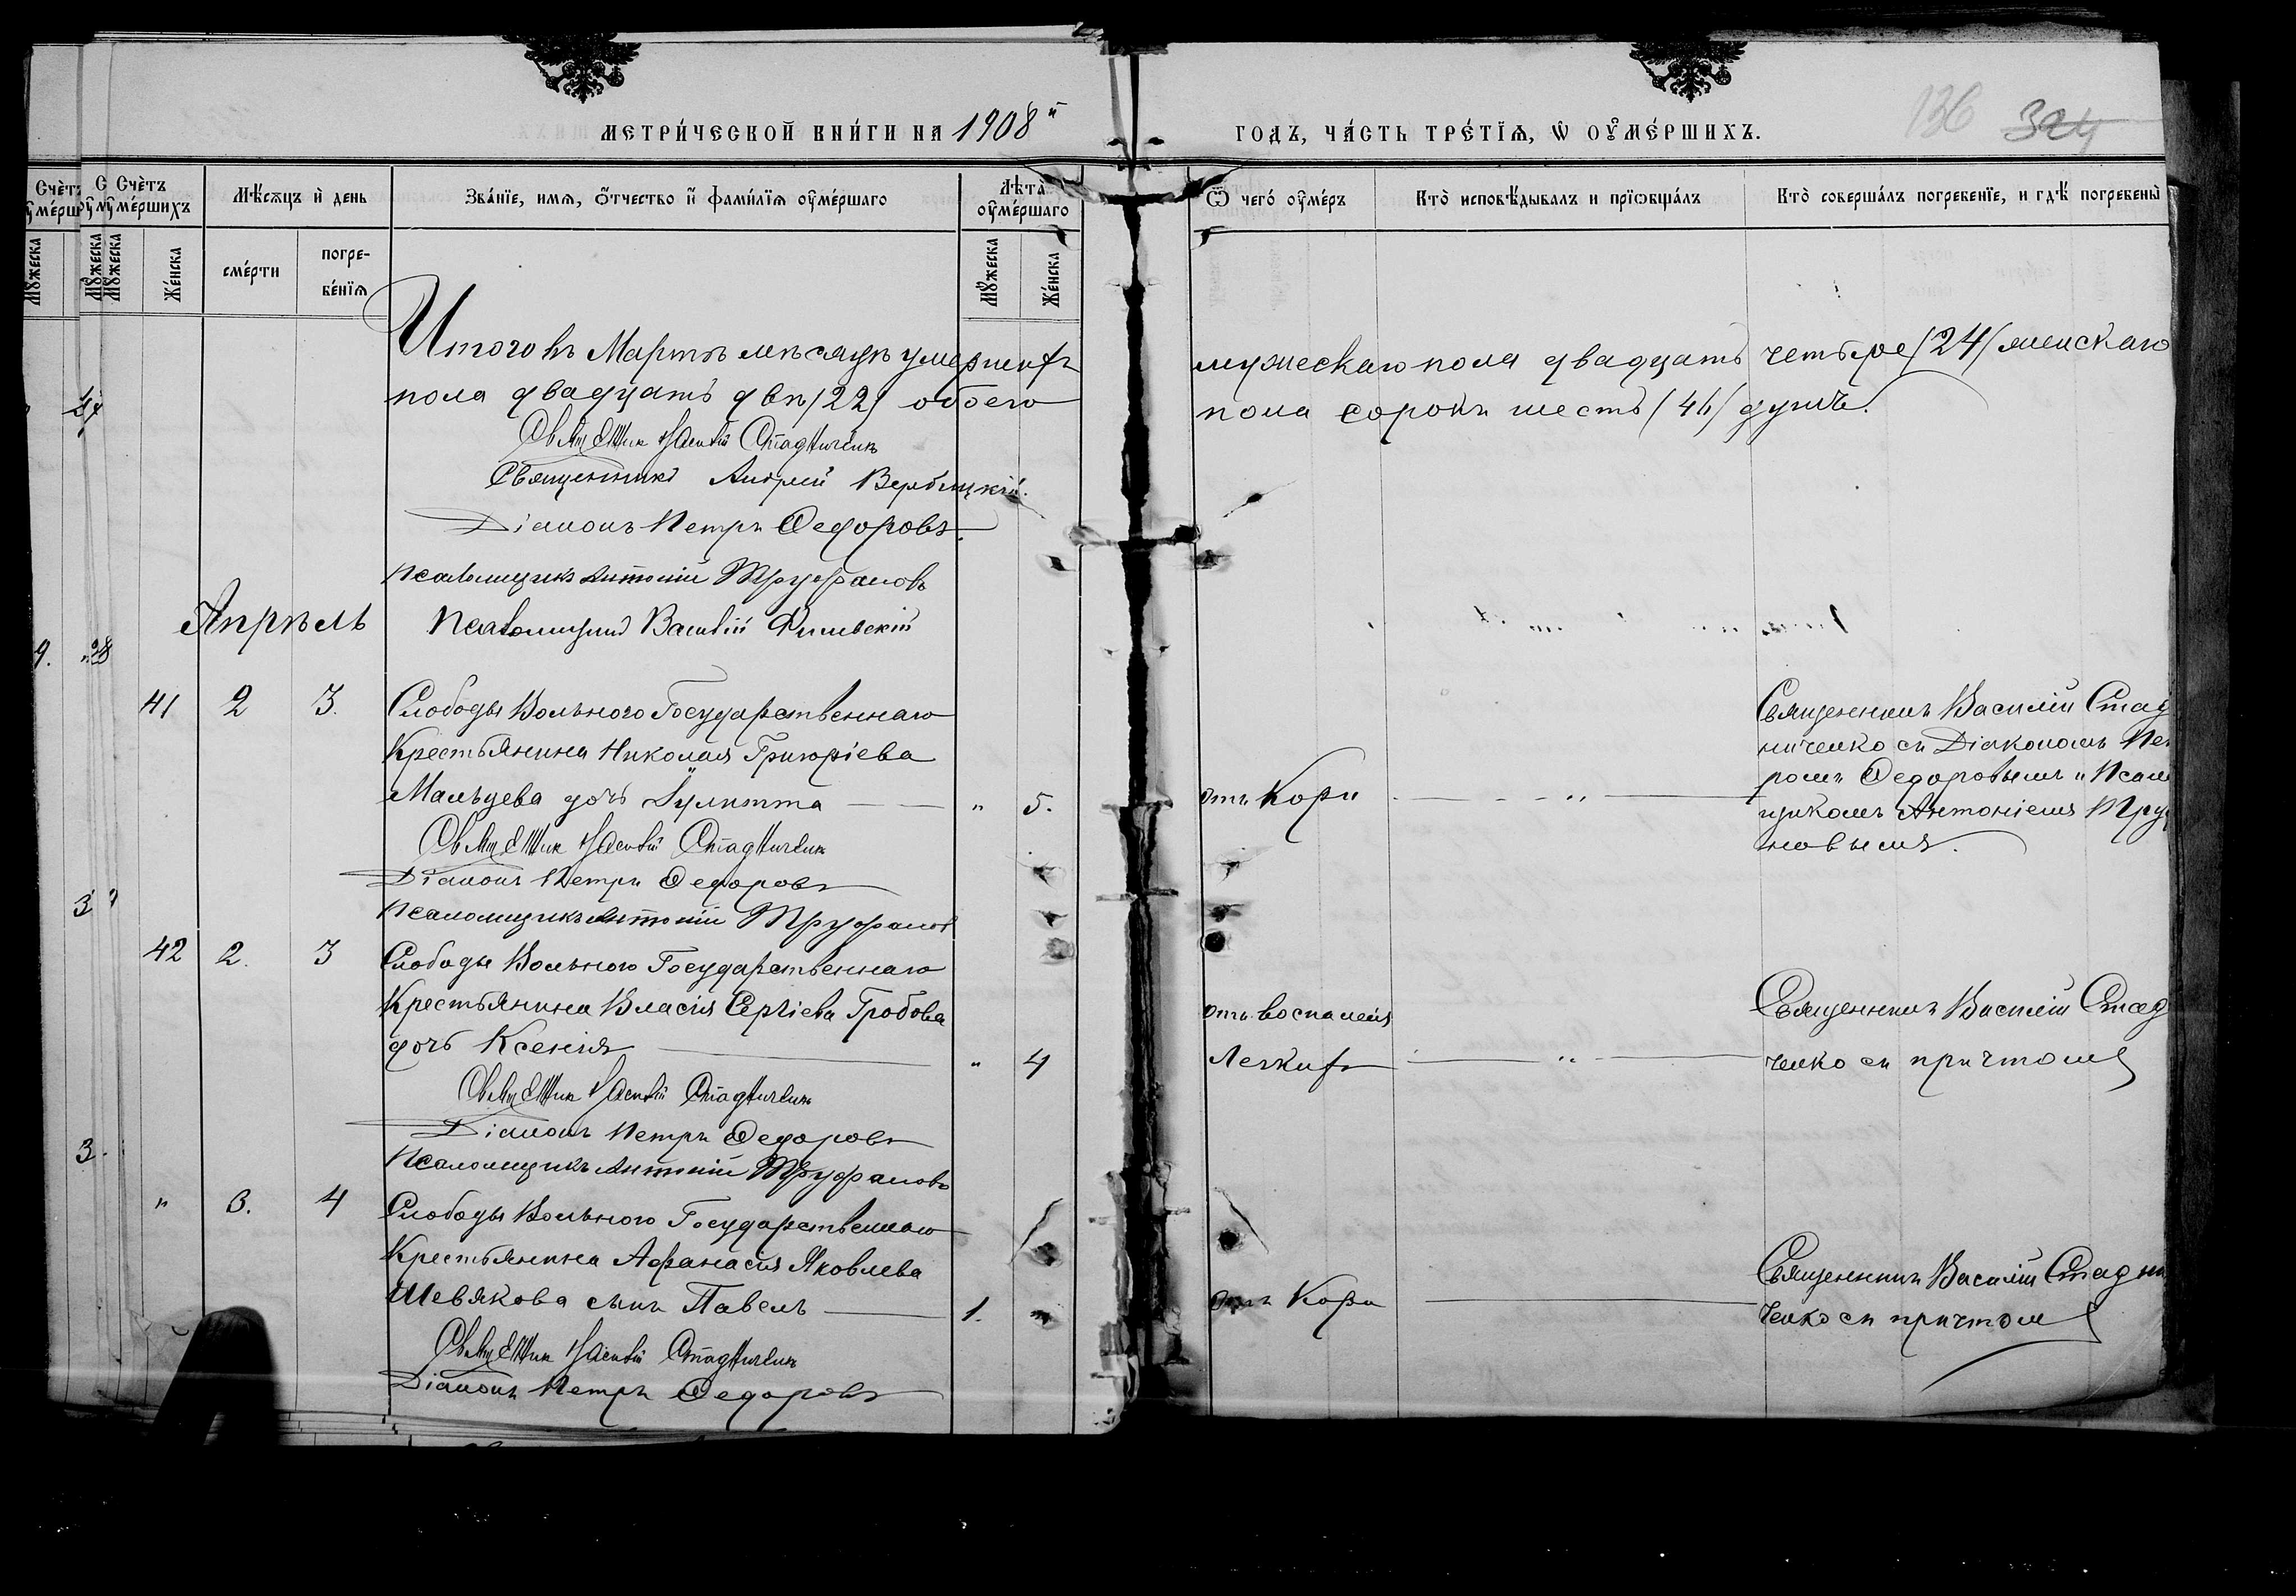 МЕТРИ́ЧЕСКОЙ КНИ́ГИ НА 1908й
ГОДЪ, ЧА́СТЬ ТРЕ́ТЇѦ, Ѡ ОУ҆МЕ́РШИХЪ.
136 324
Счѐтъ оу҆ме́ршихъ
Мѣ́сѧцъ и҆ день
Зва́нїе, имѧ, ѻ҆́тчество и҆ фами́лїѧ оу҆ме́ршаго
Лѣта̀ оу҆ме́ршаго
Ѿ чегѡ́ оу҆ме́ръ
Кто̀ исповѣ́дывалъ и прїѡбща́лъ
Кто̀ соверша́лъ погребенїе, и гдѣ́ погребены̀
Мꙋ́жеска
Же́нска
сме́рти
погре-
бе́нїѧ
Мꙋ́жеска
Же́нска
Итого въ Мартѣ мѣсяцѣ умершихъ мужескаго пола двадцать четыре /24/ женскаго
пола двадцать двѣ /22/ обоего пола сорокъ шесть /46/ душъ.
Священникъ Василій Стадниченко
Священникъ Андрей Вербицкій.
Діаконъ Петръ Ѳедоровъ.
Псаломщикъ Антоній Труфановъ
Апрѣль
Псаломщикъ Василій
41 2 3. Слободы Вольного Государственнаго
Крестьянина Николая Григоріева
Мальцева дочь Іулитта " 5.
отъ Кори "
Священникъ Василій Стад
ниченко съ Діакономъ Пет
ромъ Ѳедоровымъ и Псалом
щикомъ Антоніемъ Труф
новымъ.
Священникъ Василій Стадниченко
Діаконъ Петръ Ѳедоровъ
Псаломщикъ Антоній Труфановъ
42 2. 3 Слободы Вольного Государственнаго
Крестьянина Власія Сергіева Гробова
дочь Ксенія " 4
отъ воспаленія
Легкихъ "
Священникъ Василій Стад
ченко съ причтомъ
Священникъ Василій Стадниченко
Діаконъ Петръ Ѳедоровъ
Псаломщикъ Антоній Труфановъ
" 3. 4 Слободы Вольного Государственнаго
Крестьянина Афанасія Яковлева
Шевякова сынъ Павелъ 1. "
отъ Кори
Священникъ Василій Стадни
ченко съ причтом
Священникъ Василій Стадниченко
Діаконъ Петръ Ѳедоровъ